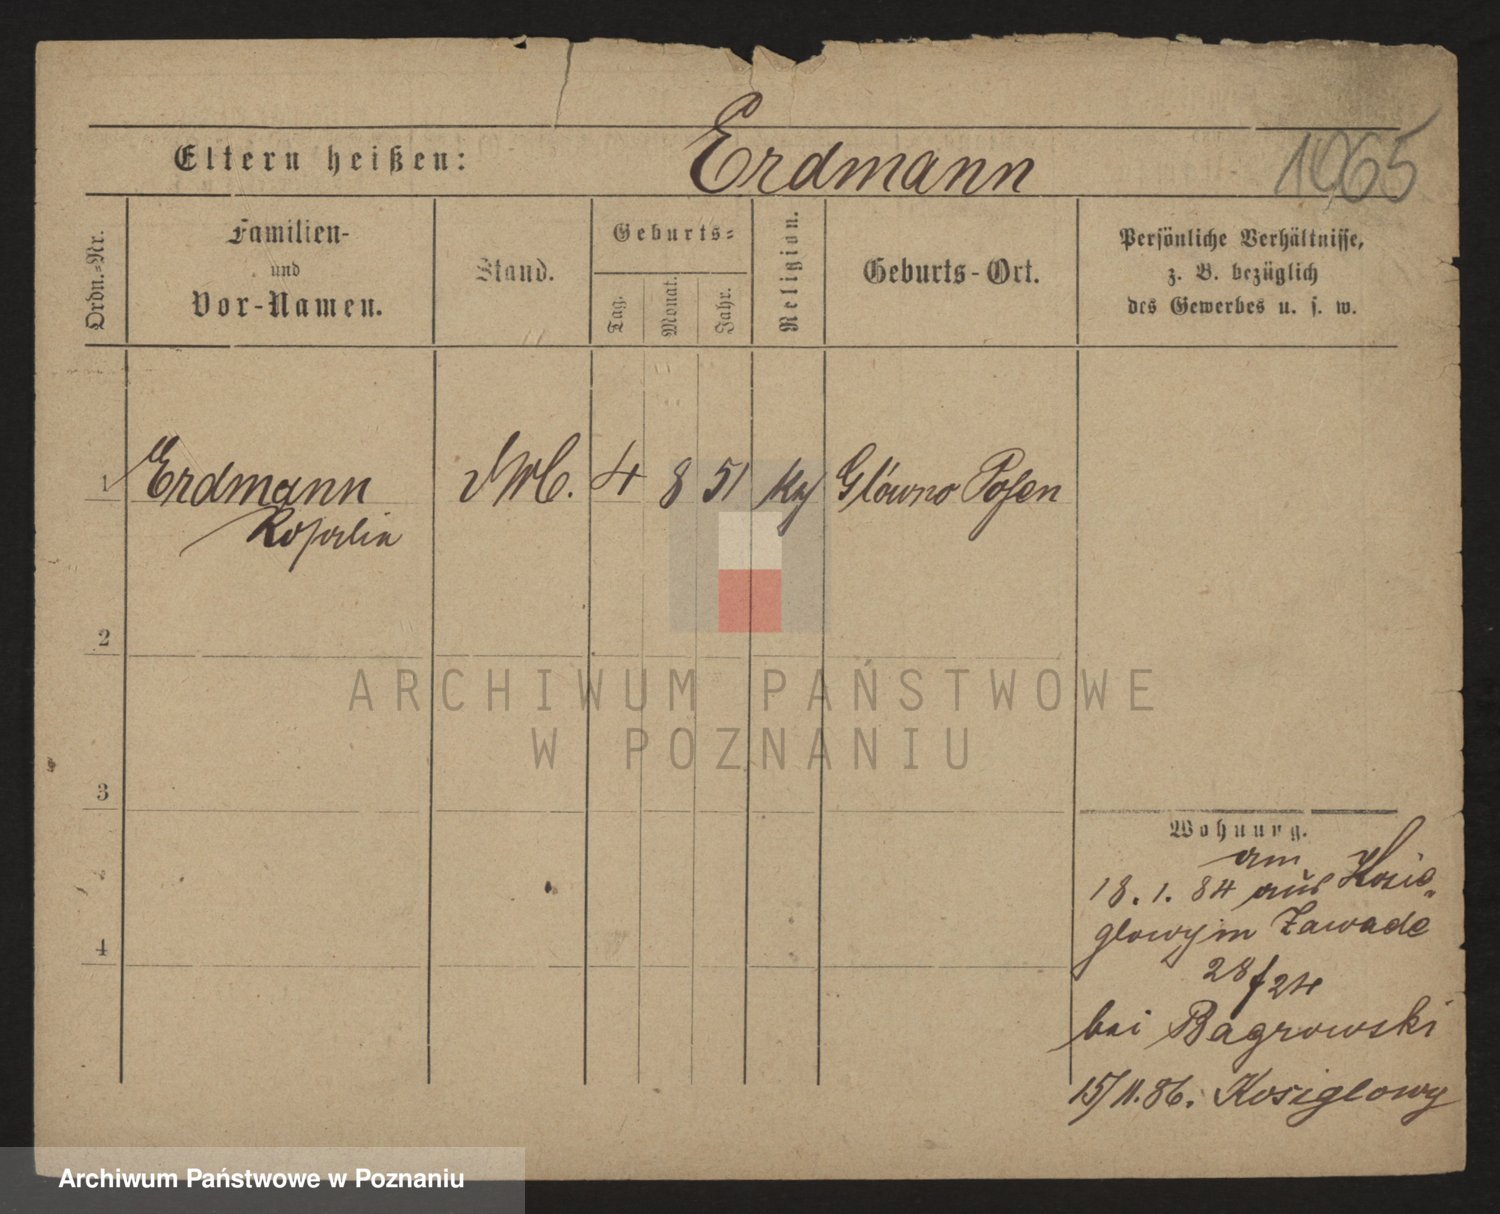 Eltern heißen: Erdmann 1065
Ordn.=Nr.
Familien-
und
Vor-Namen.
Stand.
Geburts=
Tag.
Monat.
Jahr.
Religion.
Geburts-Ort.
Persönliche Verhältnisse,
z. B. bezüglich
des Gewerbes u. s. w.
1 Erdmann 4 8 51 Glówno Posen
Rosalie
2
ARCHIWUM PAŃSTWOWE
W POZNANIU
3
Wohnung.
am
18. 1. 84 aus Kosie=
glowy in Zawade
28/24
4
bei Bagrowski
15/11.86. Kosiglowy
Archiwum Państwowe w Poznaniu